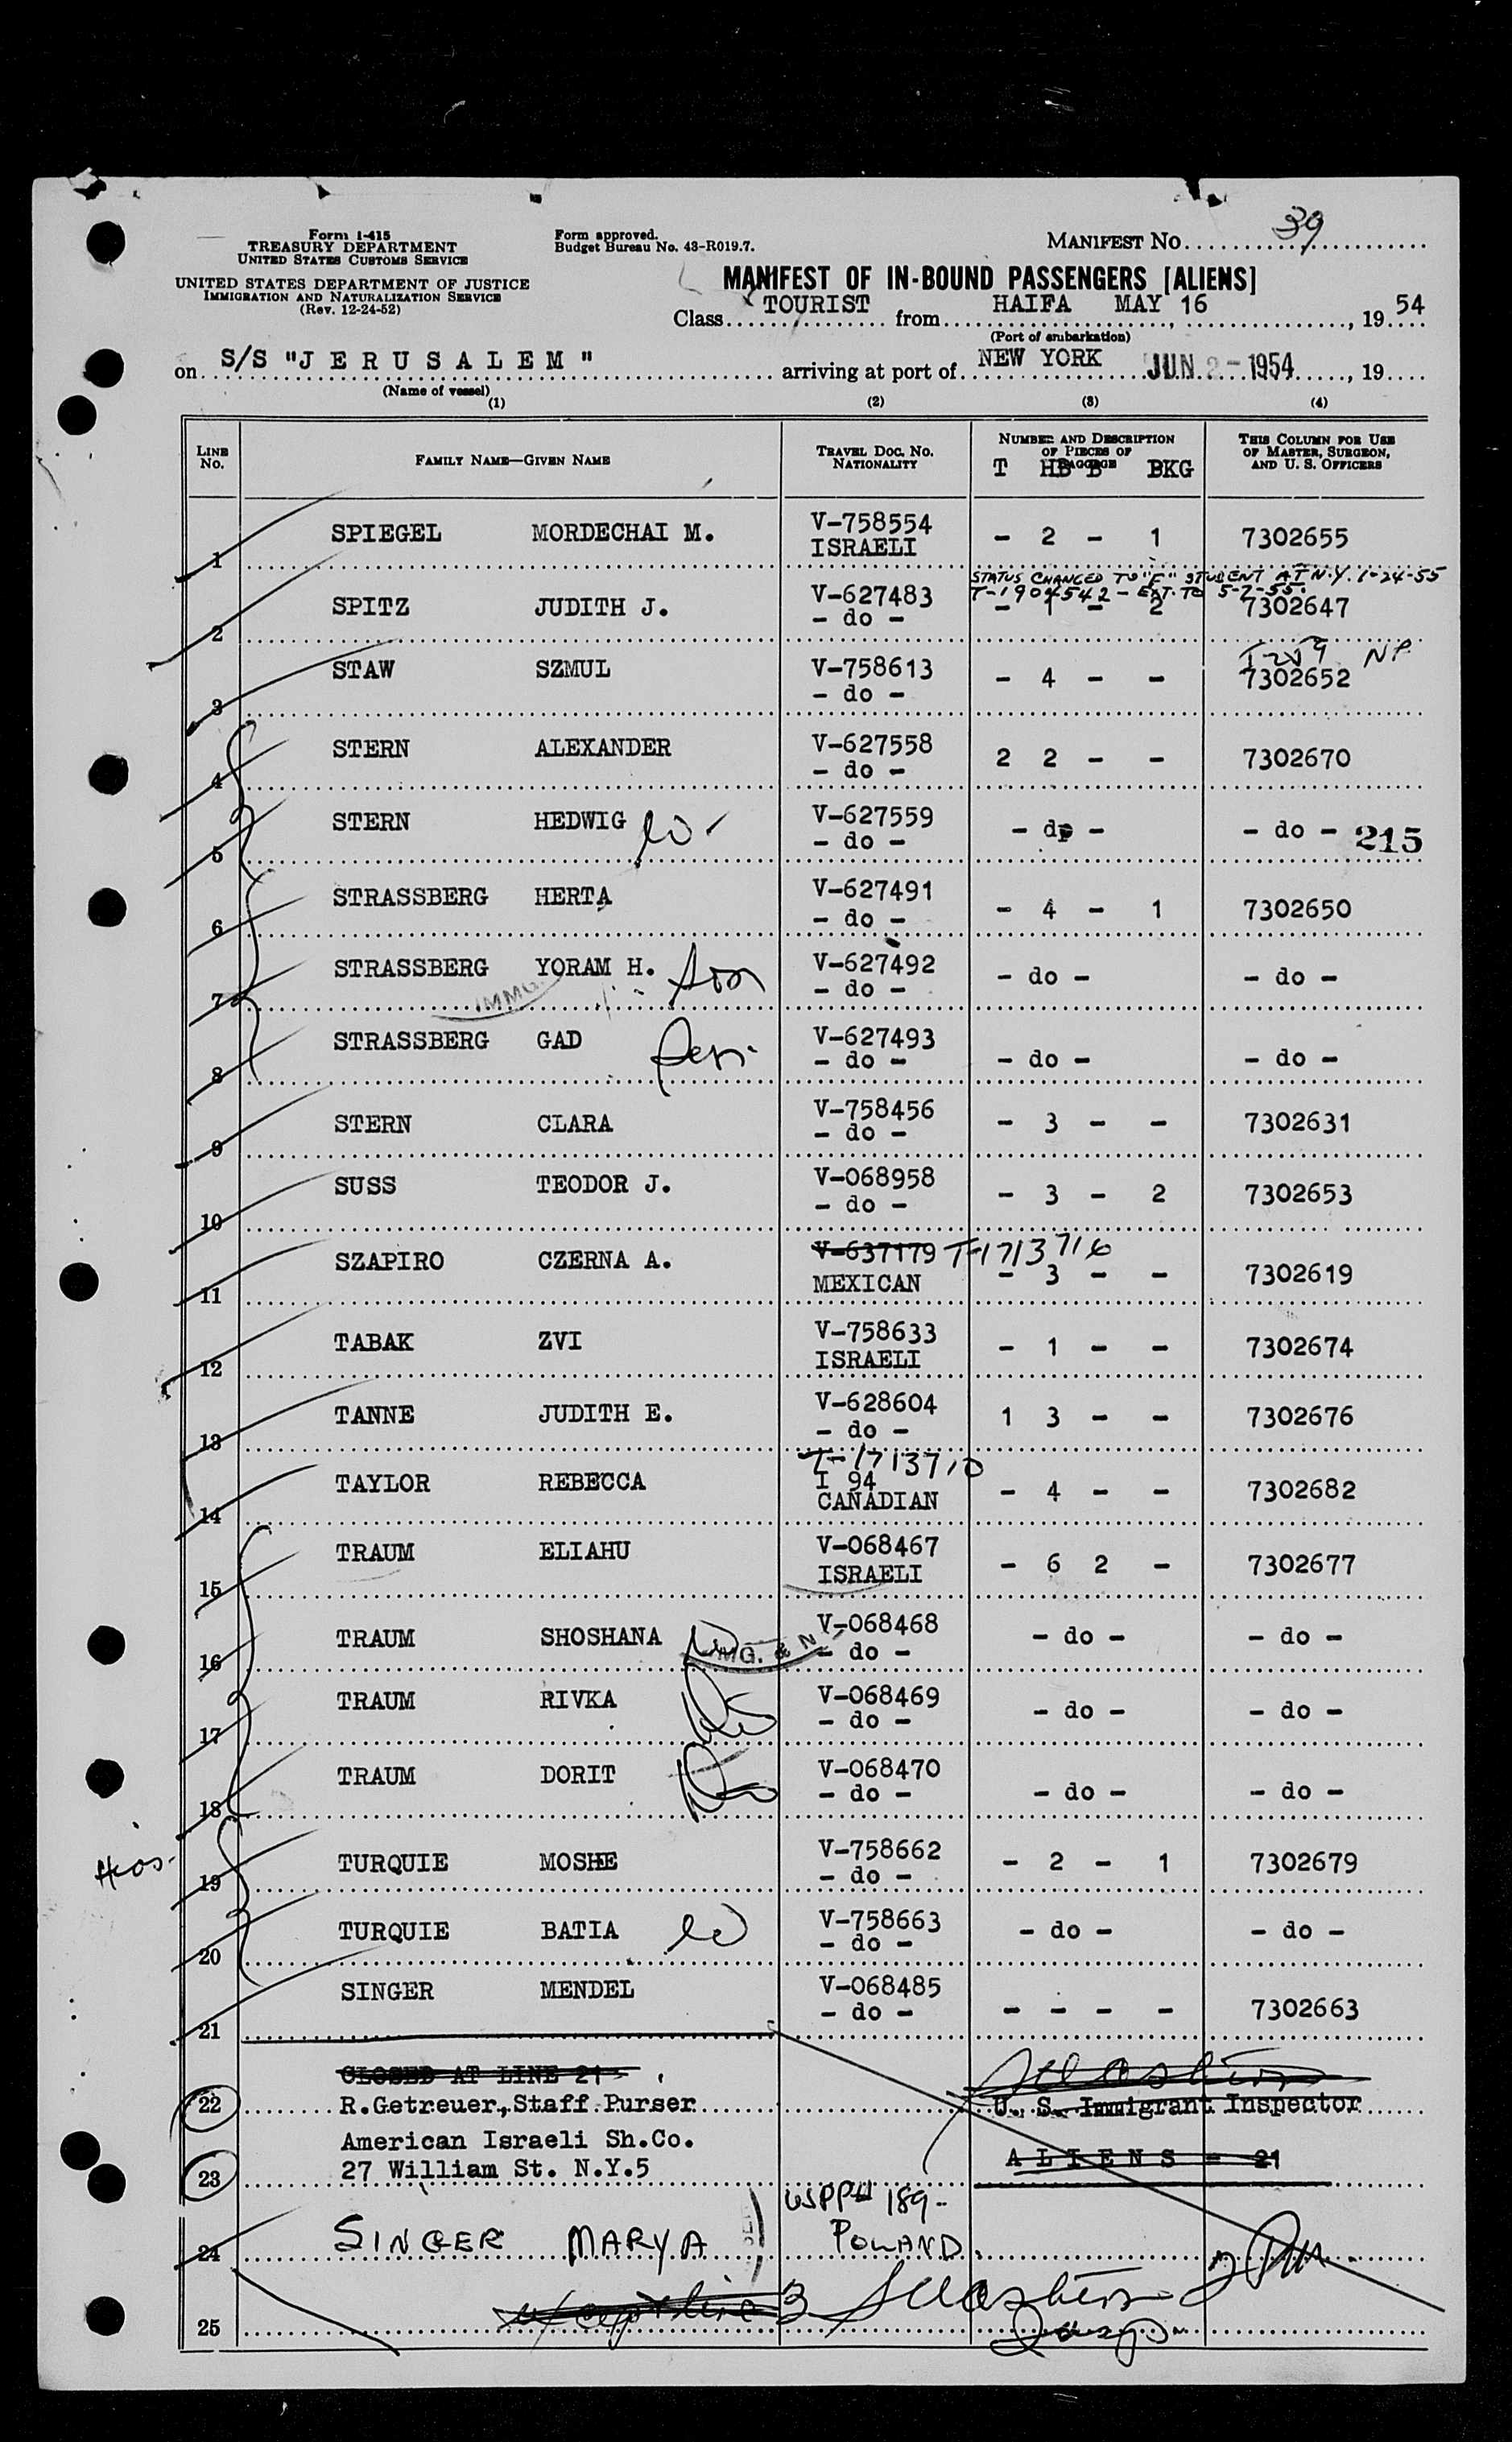 Form I-415
TREASURY DEPARTMENT
UNITED STATES CUSTOMS SERVICE
UNITED STATES DEPARTMENT OF JUSTICE
IMMIGRATION AND NATURALIZATION SERVICE
(Rev. 12-24-52)
Form approved.
Budget Bureau No. 43-R019.7.
MANIFEST NO. 39
MANIFEST OF IN-BOUND PASSENGERS [ALIENS]
Class TOURIST from HAIFA MAY 16, 1954
(Port of embarkation)
on S/S "J E R U S A L E M" arriving at port of NEW YORK JUN 2-1954, 19
(Name of vessel)
(1) (2) (3) (4)
LINE No. FAMILY NAME—GIVEN NAME TRAVEL DOC. NO. NATIONALITY NUMBER AND DESCRIPTION OF PIECES OF BAGGAGE THIS COLUMN FOR USE OF MASTER, SURGEON, AND U. S. OFFICERS
T HB B BKG
1 SPIEGEL MORDECHAI M. V-758554 - 2 - 1 7302655
ISRAELI
STATUS CHANGED TO "F" STUDENT AT N.Y. 1-24-55
T-1904542 - EXT. TO 5-2-55.
2 SPITZ JUDITH J. V-627483 - 1 - 2 7302647
- do -
NP
3 STAW SZMUL V-758613 - 4 - - 7302652
- do -
4 STERN ALEXANDER V-627558 2 2 - - 7302670
- do -
5 STERN HEDWIG W V-627559 - do - - do - 215
- do -
6 STRASSBERG HERTA V-627491 - 4 - 1 7302650
- do -
7 STRASSBERG YORAM H. son V-627492 - do - - do -
- do -
IMMG.
8 STRASSBERG GAD V-627493 - do - - do -
- do -
9 STERN CLARA V-758456 - 3 - - 7302631
- do -
10 SUSS TEODOR J. V-068958 - 3 - 2 7302653
- do -
11 SZAPIRO CZERNA A. V-637179 T-1713716 - 3 - - 7302619
MEXICAN
12 TABAK ZVI V-758633 - 1 - - 7302674
ISRAELI
13 TANNE JUDITH E. V-628604 1 3 - - 7302676
- do -
T-1713710
14 TAYLOR REBECCA I 94 - 4 - - 7302682
CANADIAN
15 TRAUM ELIAHU V-068467 - 6 2 - 7302677
ISRAELI
16 TRAUM SHOSHANA W V-068468 - do - - do -
MG. & N - do -
17 TRAUM RIVKA V-068469 - do - - do -
- do -
18 TRAUM DORIT V-068470 - do - - do -
- do -
19 TURQUIE MOSHE V-758662 - 2 - 1 7302679
- do -
20 TURQUIE BATIA W V-758663 - do - - do -
- do -
21 SINGER MENDEL V-068485 - - - - 7302663
- do -
CLOSED AT LINE 21
22 R.Getreuer, Staff Purser U. S. Immigrant Inspector
American Israeli Sh.Co.
23 27 William St. N.Y.5 A L I E N S = 21
USPP# 189-
24 SINGER MARYA POLAND.
25